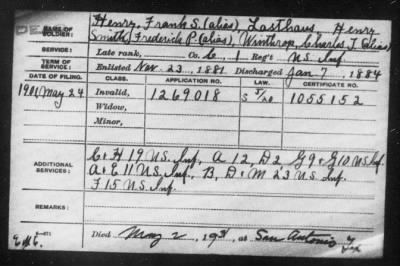 DE
NAME OF SOLDIER: Henry, Frank S. (alias), Lasthaus Henry
Smith, Frederick P. (alias), Winthrop, Charles J. (alias)
SERVICE: Late rank, Co. C, 1 Reg't U.S. Inf
TERM OF SERVICE: Enlisted Nov. 23, 1881 Discharged Jan 7, 1884
DATE OF FILING. CLASS. APPLICATION NO. LAW. CERTIFICATE NO.
1901, May 24 Invalid, 1269018 S 1055152
Widow,
Minor,
ADDITIONAL SERVICES: C + H 19 U.S. Inf, A 12, D 2 G 9 + G 10 U.S. Inf.
A + E 11 U.S. Inf, B, D + M 23 U.S. Inf.
F 15 U.S. Inf.
REMARKS:
Died May 2, 1931, at San Antonio Tex